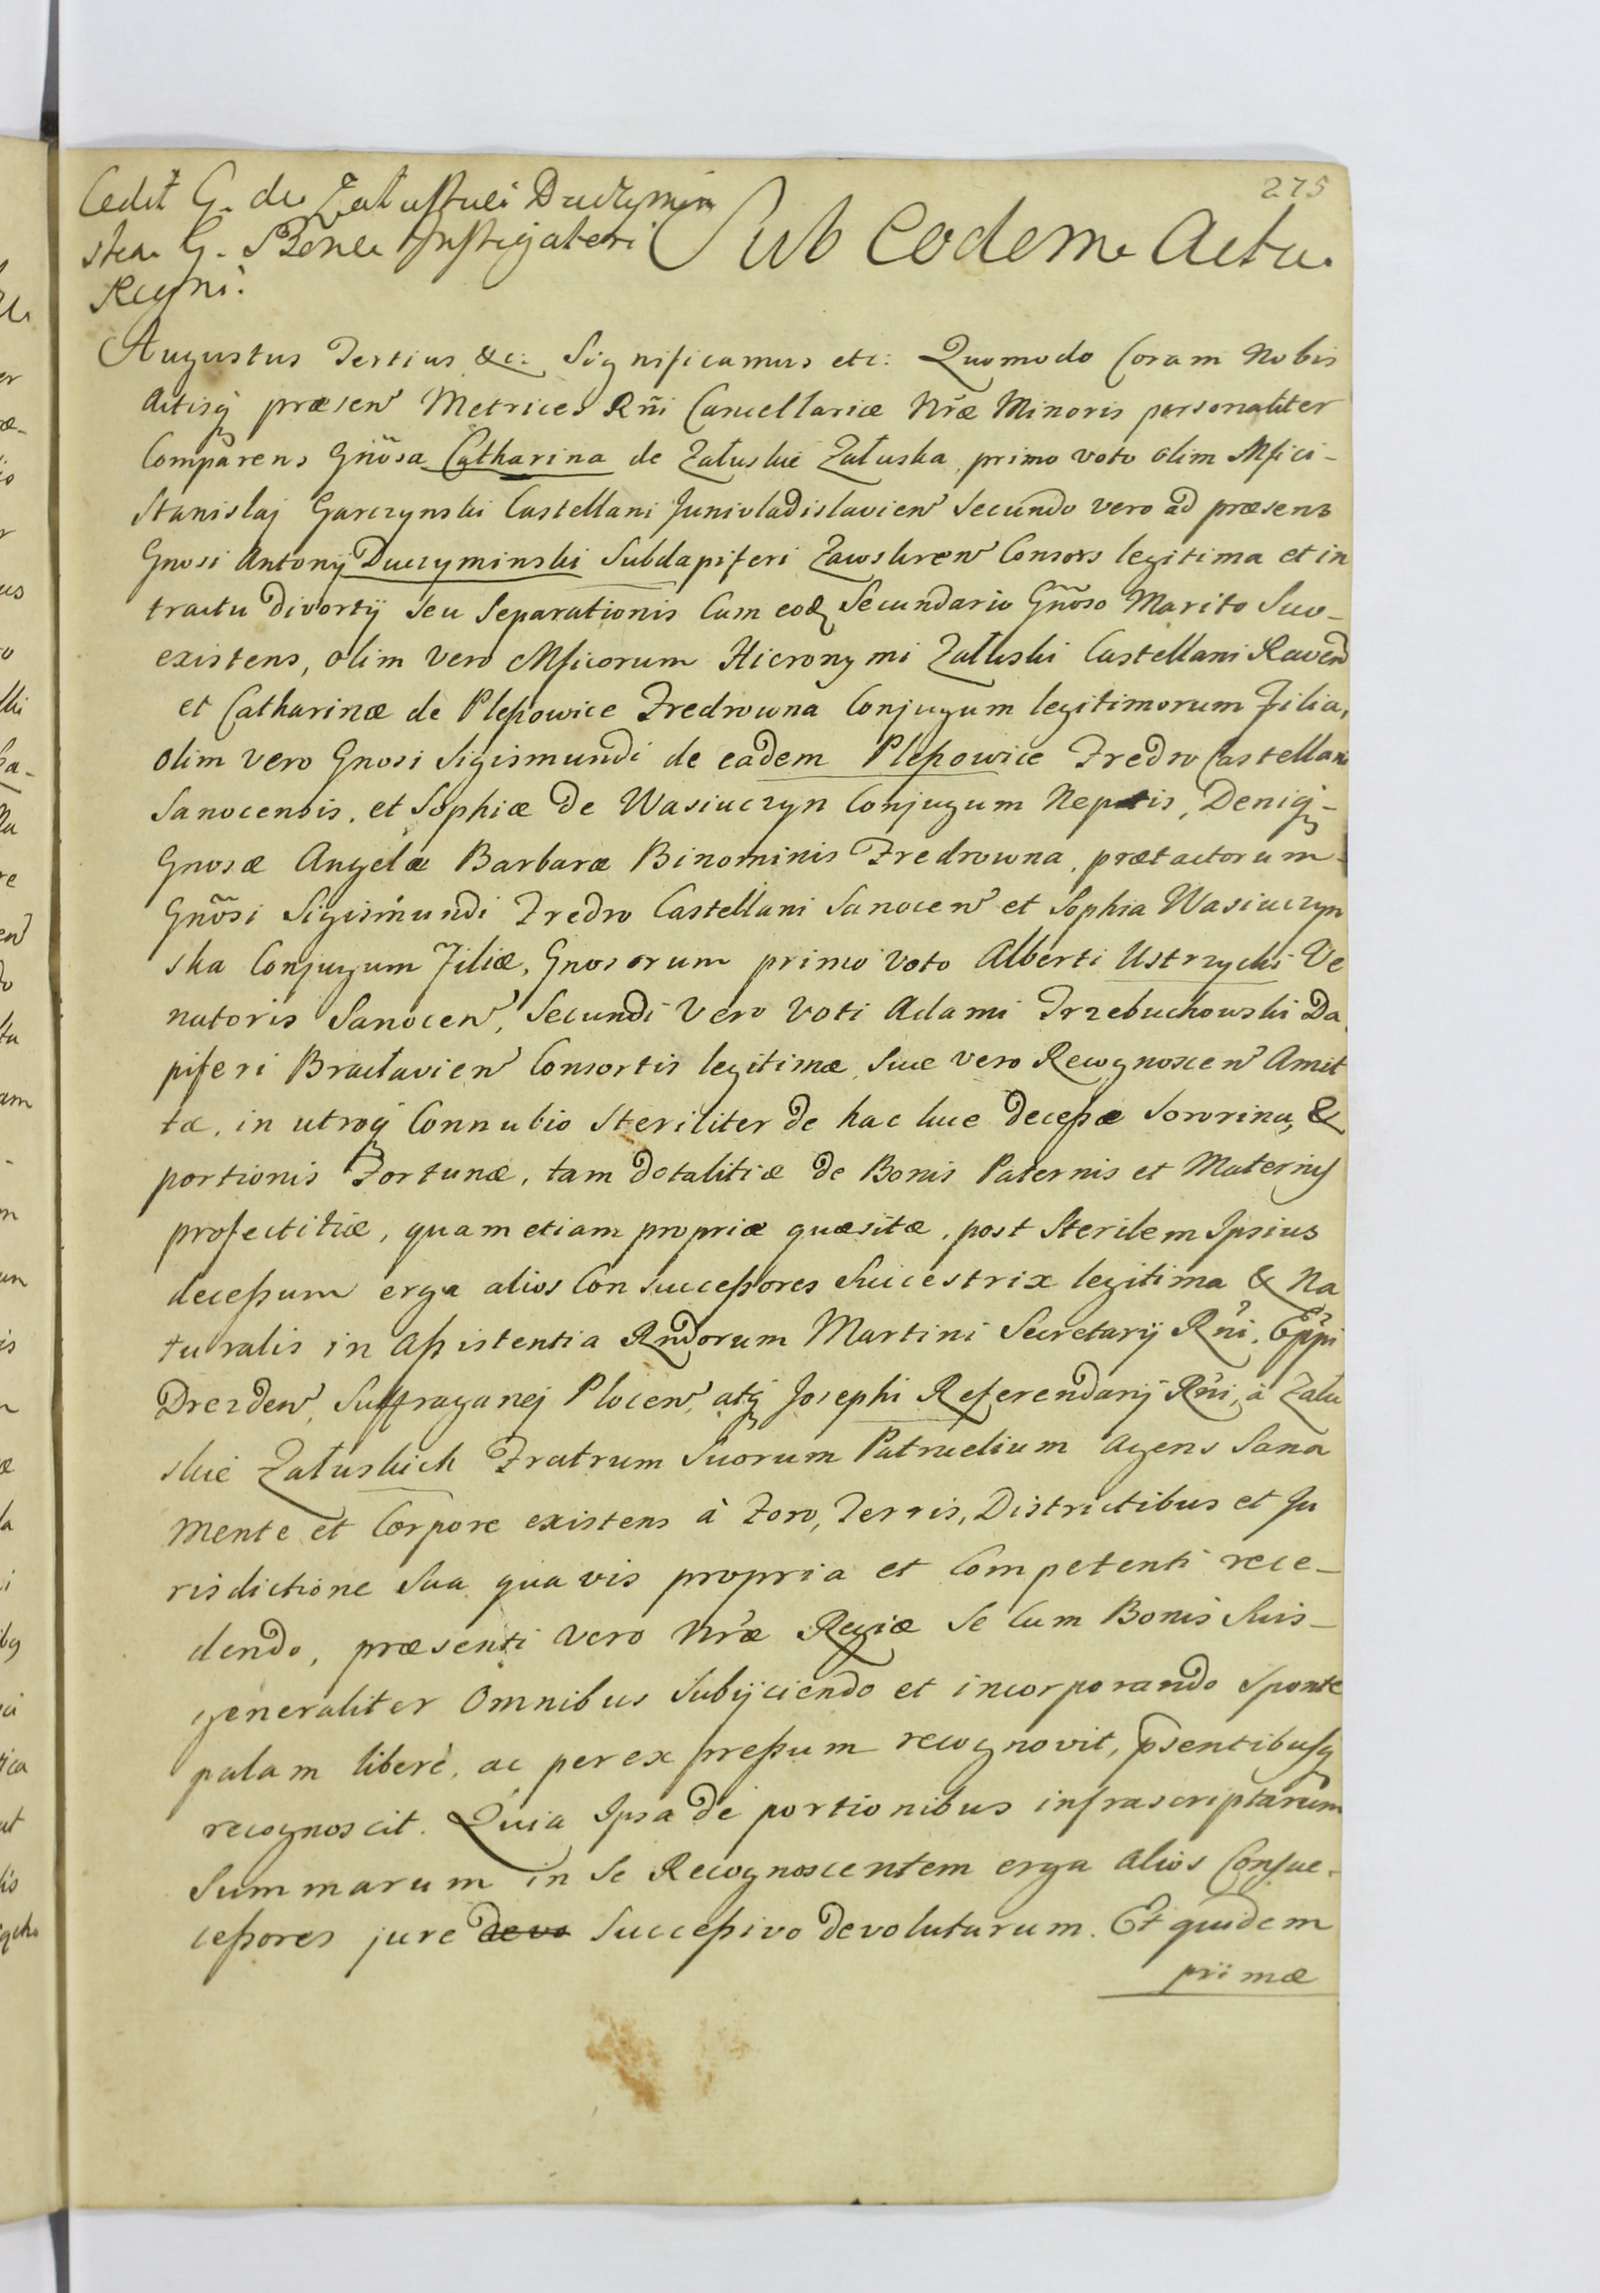 275
Cedit G. de Załuskie Duczymin
ska G. Bone Instigatori
Regni.
Sub Eodem Actu
Augustus Tertius &c: Significamus etc: Quomodo Coram Nobis
Actisq præsen Metrices Rñi Cancellariæ Nræ Minoris personaliter
Comparens Gnosa Catharina de Załuskie Załuska, primo voto olim Mfici-
Stanislaj Garczynski Castellani Junivladislavien Secundo vero ad præsens
Gnosi Antonij Duczyminski Subdapiferi Zawskren Consors legitima et in
tractu Divortij seu Separationis Cum eod Secundario Gnoso Marito Suo-
existens, olim Vero Mficorum Hieronymi Załuski Castellani Raven
et Catharinæ de Pleszowice Fredrowna Conjugum legitimorum Filia,
olim vero Gnosi Sigismundi de eadem Pleszowice Fredro Castellani
Sanocensis, et Sophiæ de Wasiuczyn Conjugum Neptis, Deniq-
Gnosæ Angelæ Barbaræ Binominis Fredrowna, prætactorum
Gnosi Sigismundi Fredro Castellani Sanocen et Sophia Wasiuczyn
ska Conjugum Filiæ, Gnosorum primo Voto Alberti Ustrzycki Ve
natoris Sanocen, Secundi Vero Voti Adami Trzebuchowski Da
piferi Bracłavien Consortis legitimæ, Suæ vero Recognoscen Amit
tæ, in utroq Connubio Steriliter de hac luce Decessæ Sororina, &
portionis Fortunæ, tam dotalitiæ de Bonis Paternis et Maternis
profectitiæ, quam etiam propriæ quæsitæ, post Sterilem Ipsius
decessum erga alios Consuccessores Succestrix legitima & Na
turalis in Assistentia Rndorum Martini Secretarij Rñi, Eppi
Drezden, Suffraganej Plocen, atq Josephi Referendarij Rñi, à Zału
skie Załuskich Fratrum Suorum Patruelium agens Sana
Mente et Corpore existens à Foro, Terris, Districtibus et Ju
risdictione Sua quavis propria et Competenti rece-
dendo, præsenti Vero Nræ Regiæ Se Cum Bonis Suis-
generaliter Omnibus Subijciendo et incorporando Sponte
palam liberè, ac per expressum recognovit, psentibusq
recognoscit. Quia Ipsa de portionibus infrascriptarum
Summarum in Se Recognoscentem erga alios Consuc-
cessores jure devo Successivo devolutarum. Et quidem
primæ